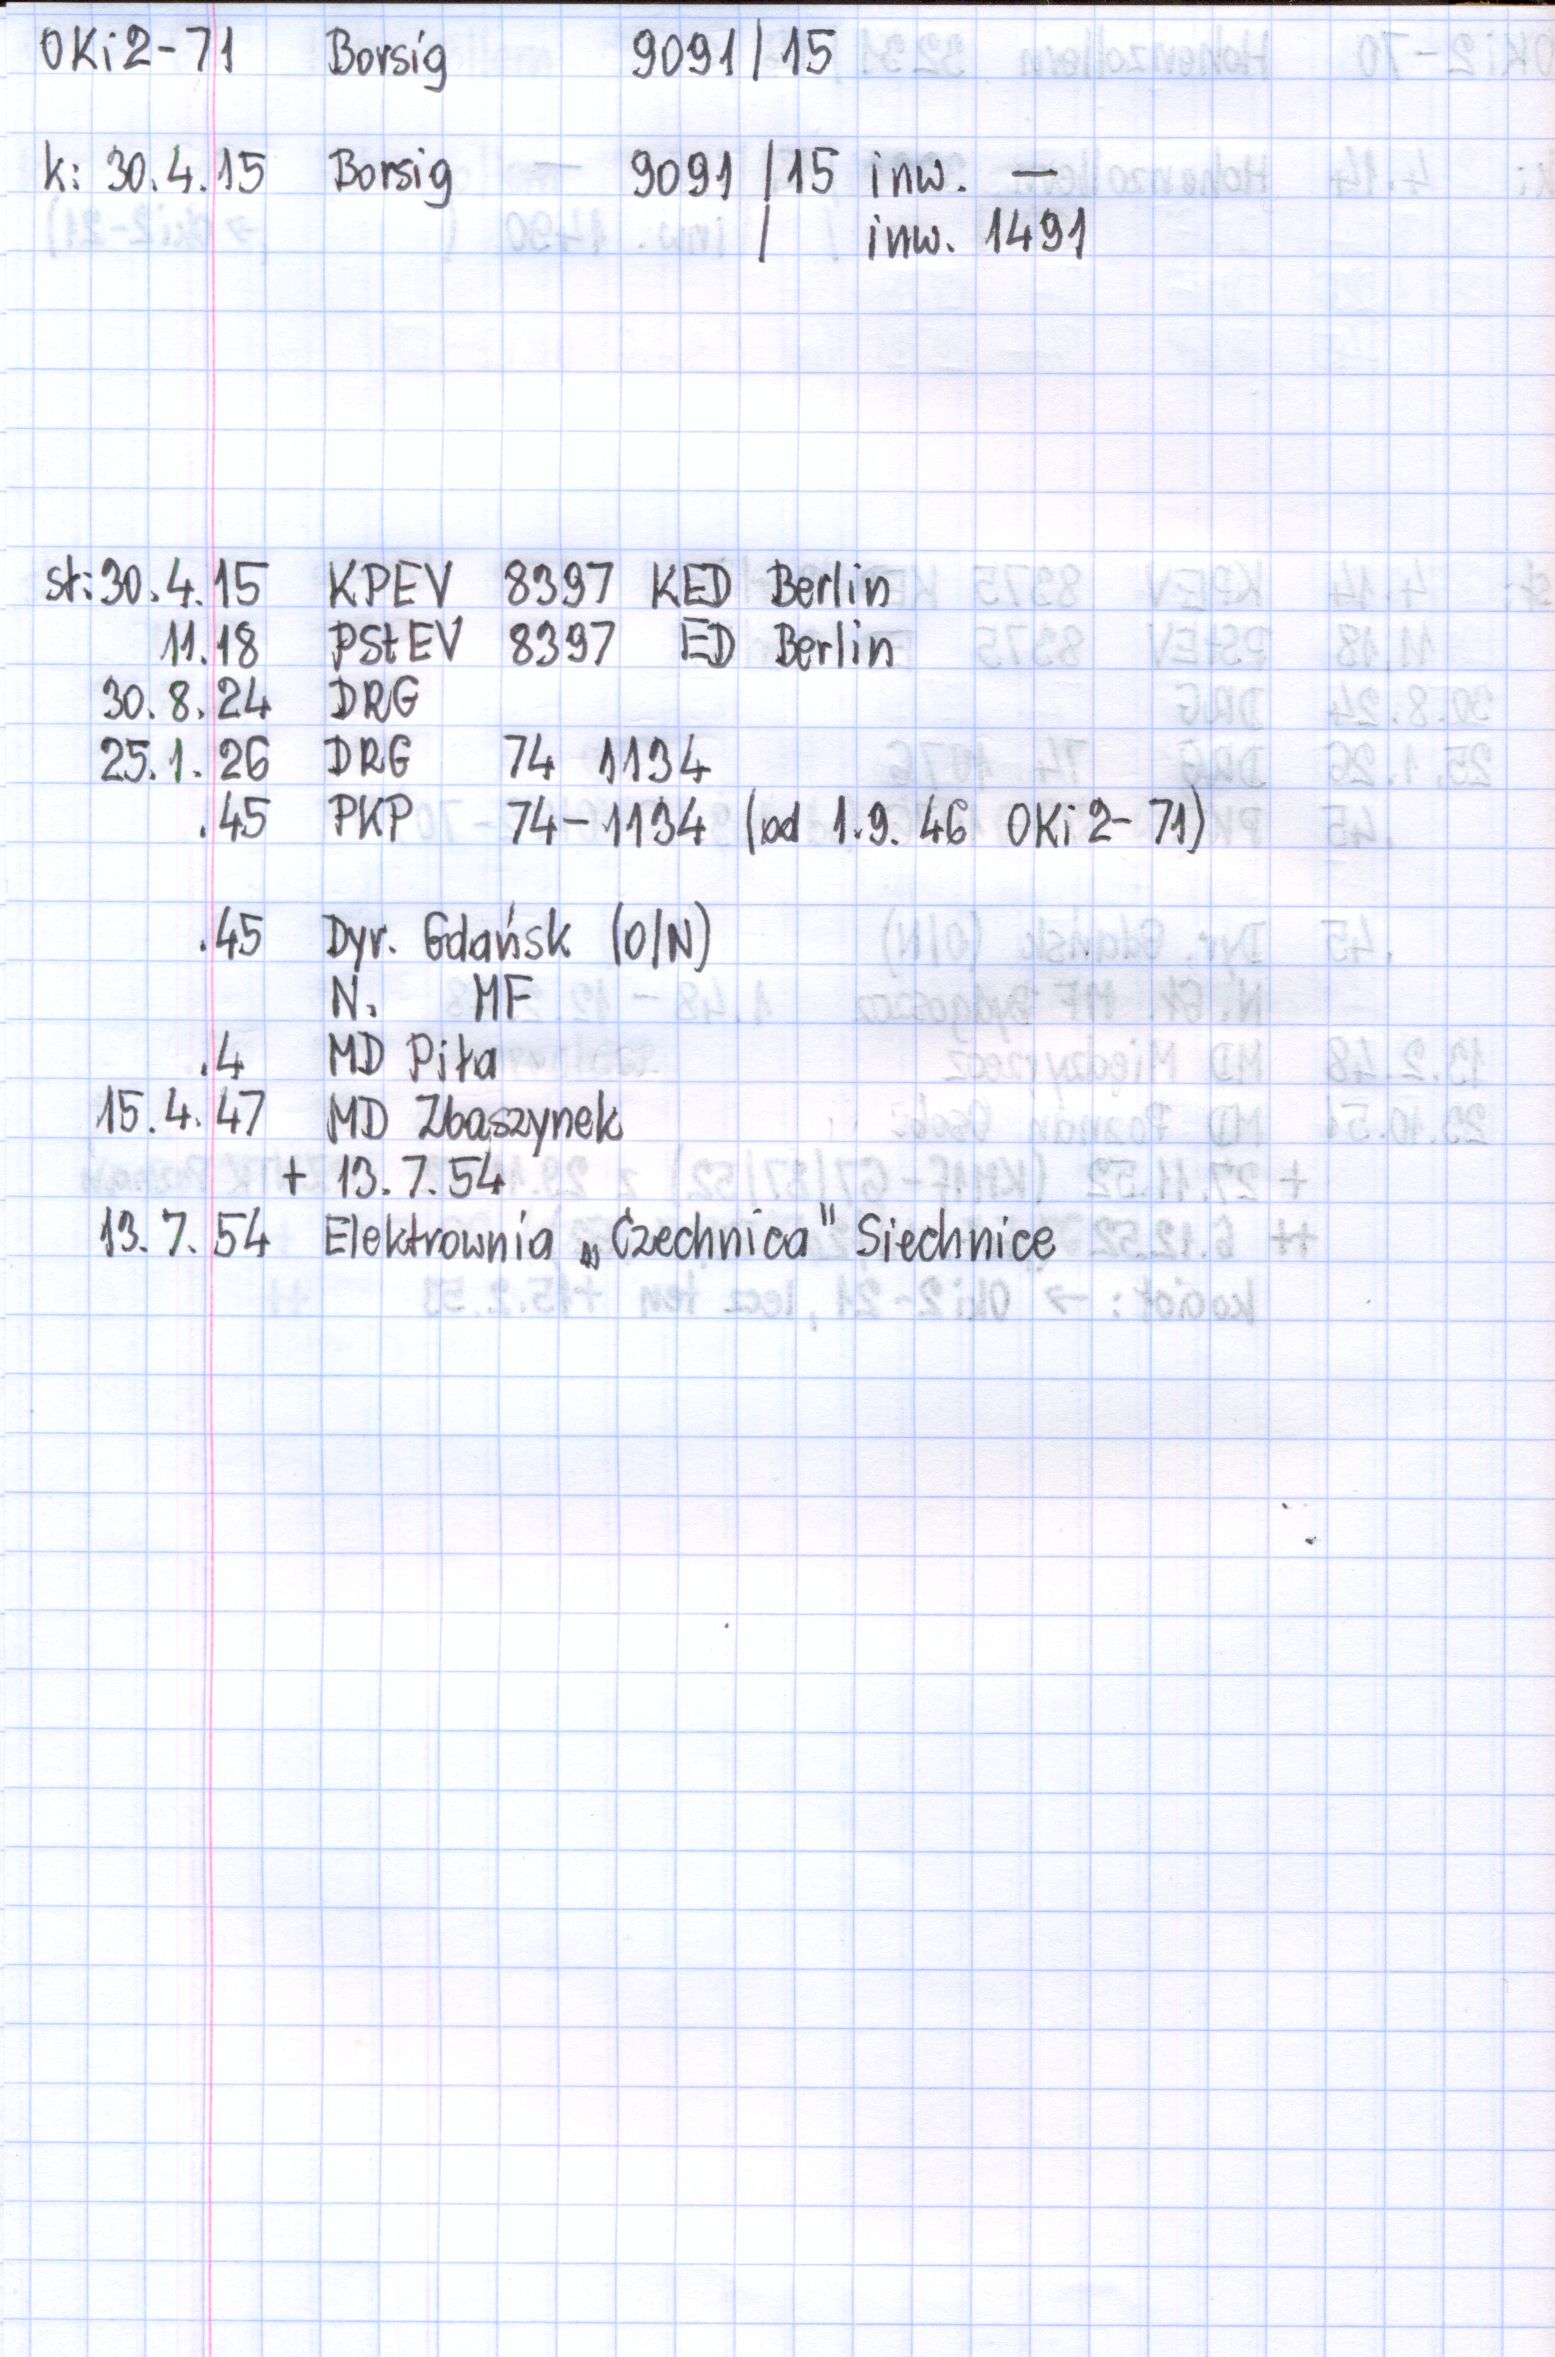 OKi2-71 Borsig 9091/15
k: 30.4.15 Borsig 9091/15 inw. —
/ inw. 1491
st: 30.4.15 KPEV 8397 KED Berlin
11.18 PStEV 8397 ED Berlin
30.8.24 DRG
25.1.26 DRG 74 1134
.45 PKP 74-1134 (od 1.9.46 OKi2-71)
.45 Dyr. Gdańsk (O/N)
N. MF
.4 MD Piła
15.4.47 MD Zbąszynek
+ 13.7.54
13.7.54 Elektrownia „Czechnica" Siechnice